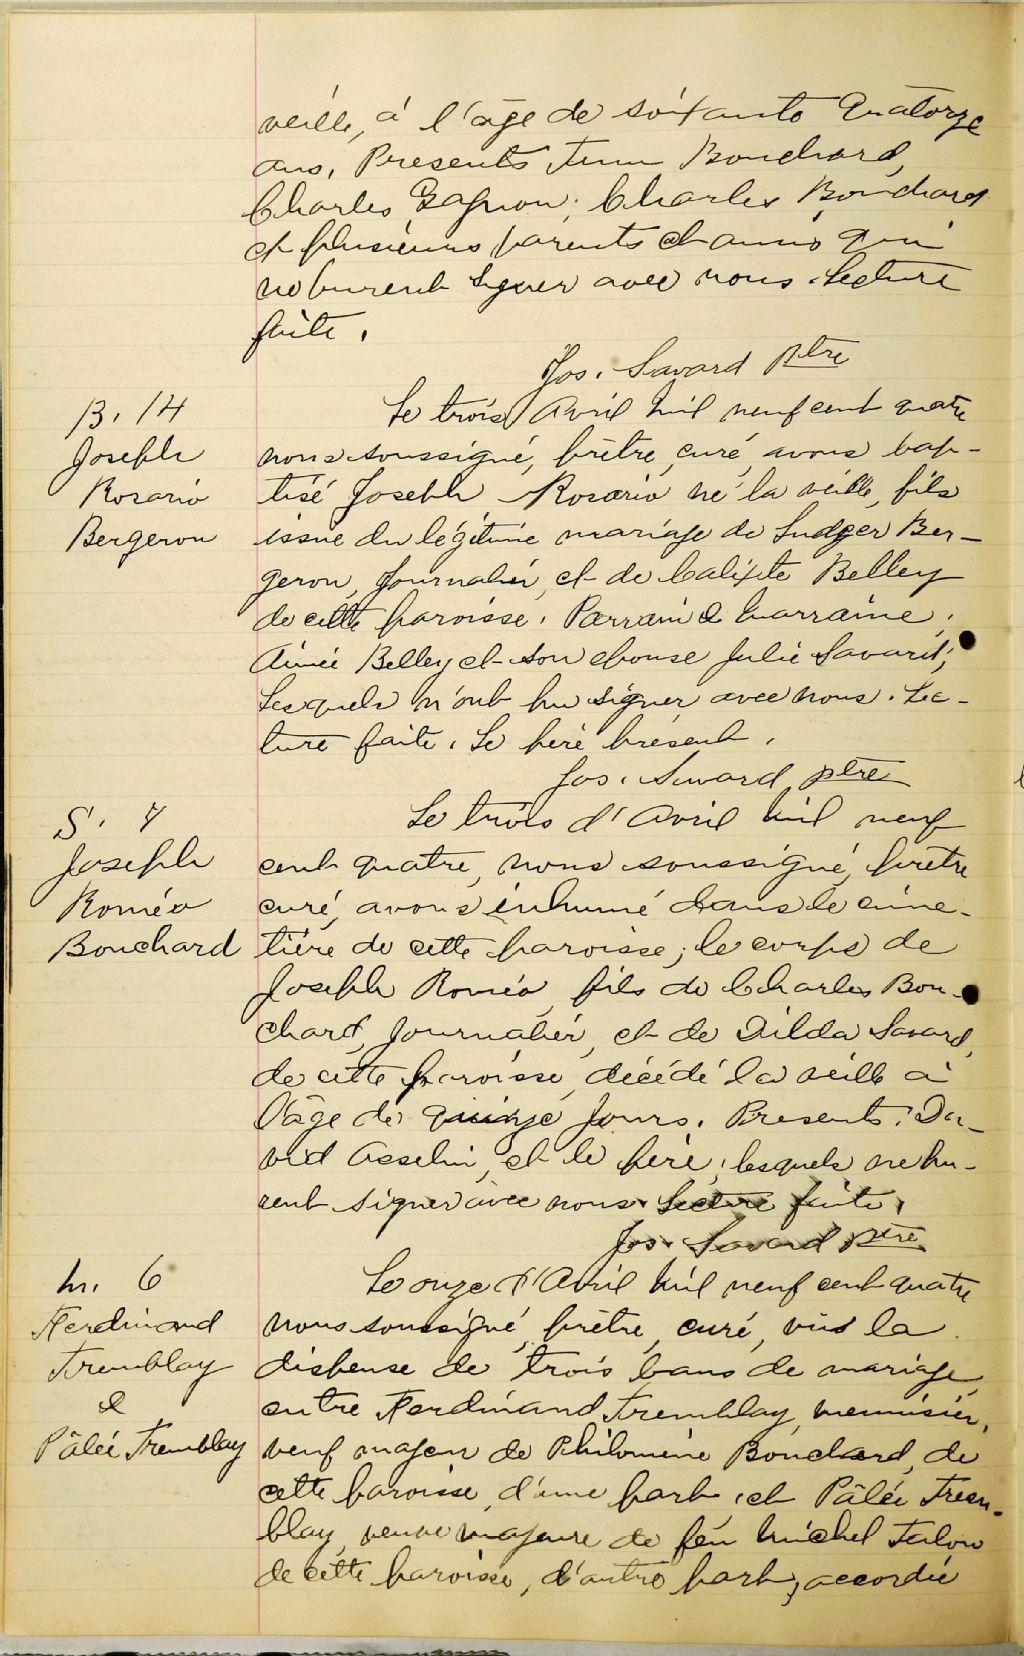 veille, à l'âge de soixante quatorze
ans. Présents Bouchard,
Charles Gagnon, Charles Bouchard
et plusieurs parents et amis qui
ne purent signer avec nous. Lecture
faite.
Jos. Savard ptre
B. 14
Joseph
Rosario
Bergeron
Le trois Avril mil neuf cent quatre
nous soussigné, prêtre, curé, avons bap-
tisé Joseph Rosario né la veille, fils
issue du légitime mariage de Ludger Ber-
geron, journalier, et de Calixte Belley
de cette paroisse. Parrain & marraine,
Aimée Belley et son épouse Julie Savard,
lesquels n'ont pu signer avec nous. Lec-
ture faite. Le père présent.
Jos. Savard ptre
S. 7
Joseph
Roméo
Bouchard
Le trois d'Avril mil neuf
cent quatre, nous soussigné, prêtre
curé, avons inhumé dans le cime-
tière de cette paroisse, le corps de
Joseph Roméo, fils de Charles Bou-
chard, journalier, et de Dilda Savard,
de cette paroisse, décédé la veille à
l'âge de quinze jours. Présents: Da-
vid Asselin, et le père, lesquels ne pu-
rent signer avec nous. Lecture faite.
Jos. Savard ptre
M. 6
Ferdinand
Tremblay
&
Pâlée Tremblay
Le onze d'Avril mil neuf cent quatre
nous soussigné, prêtre, curé, vus la
dispense de trois bans de mariage
entre Ferdinand Tremblay, menuisier,
veuf majeur de Philomène Bouchard, de
cette paroisse, d'une part, et Pâlée Trem-
blay, veuve majeure de feu Michel Talon
de cette paroisse, d'autre part, accordée